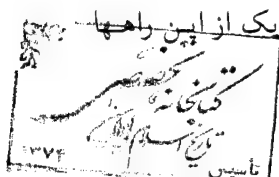 یک از این راهها
کتابخانه تخصصی
تاریخ اسلام و ایران
۱۳۷۴
تأسیس